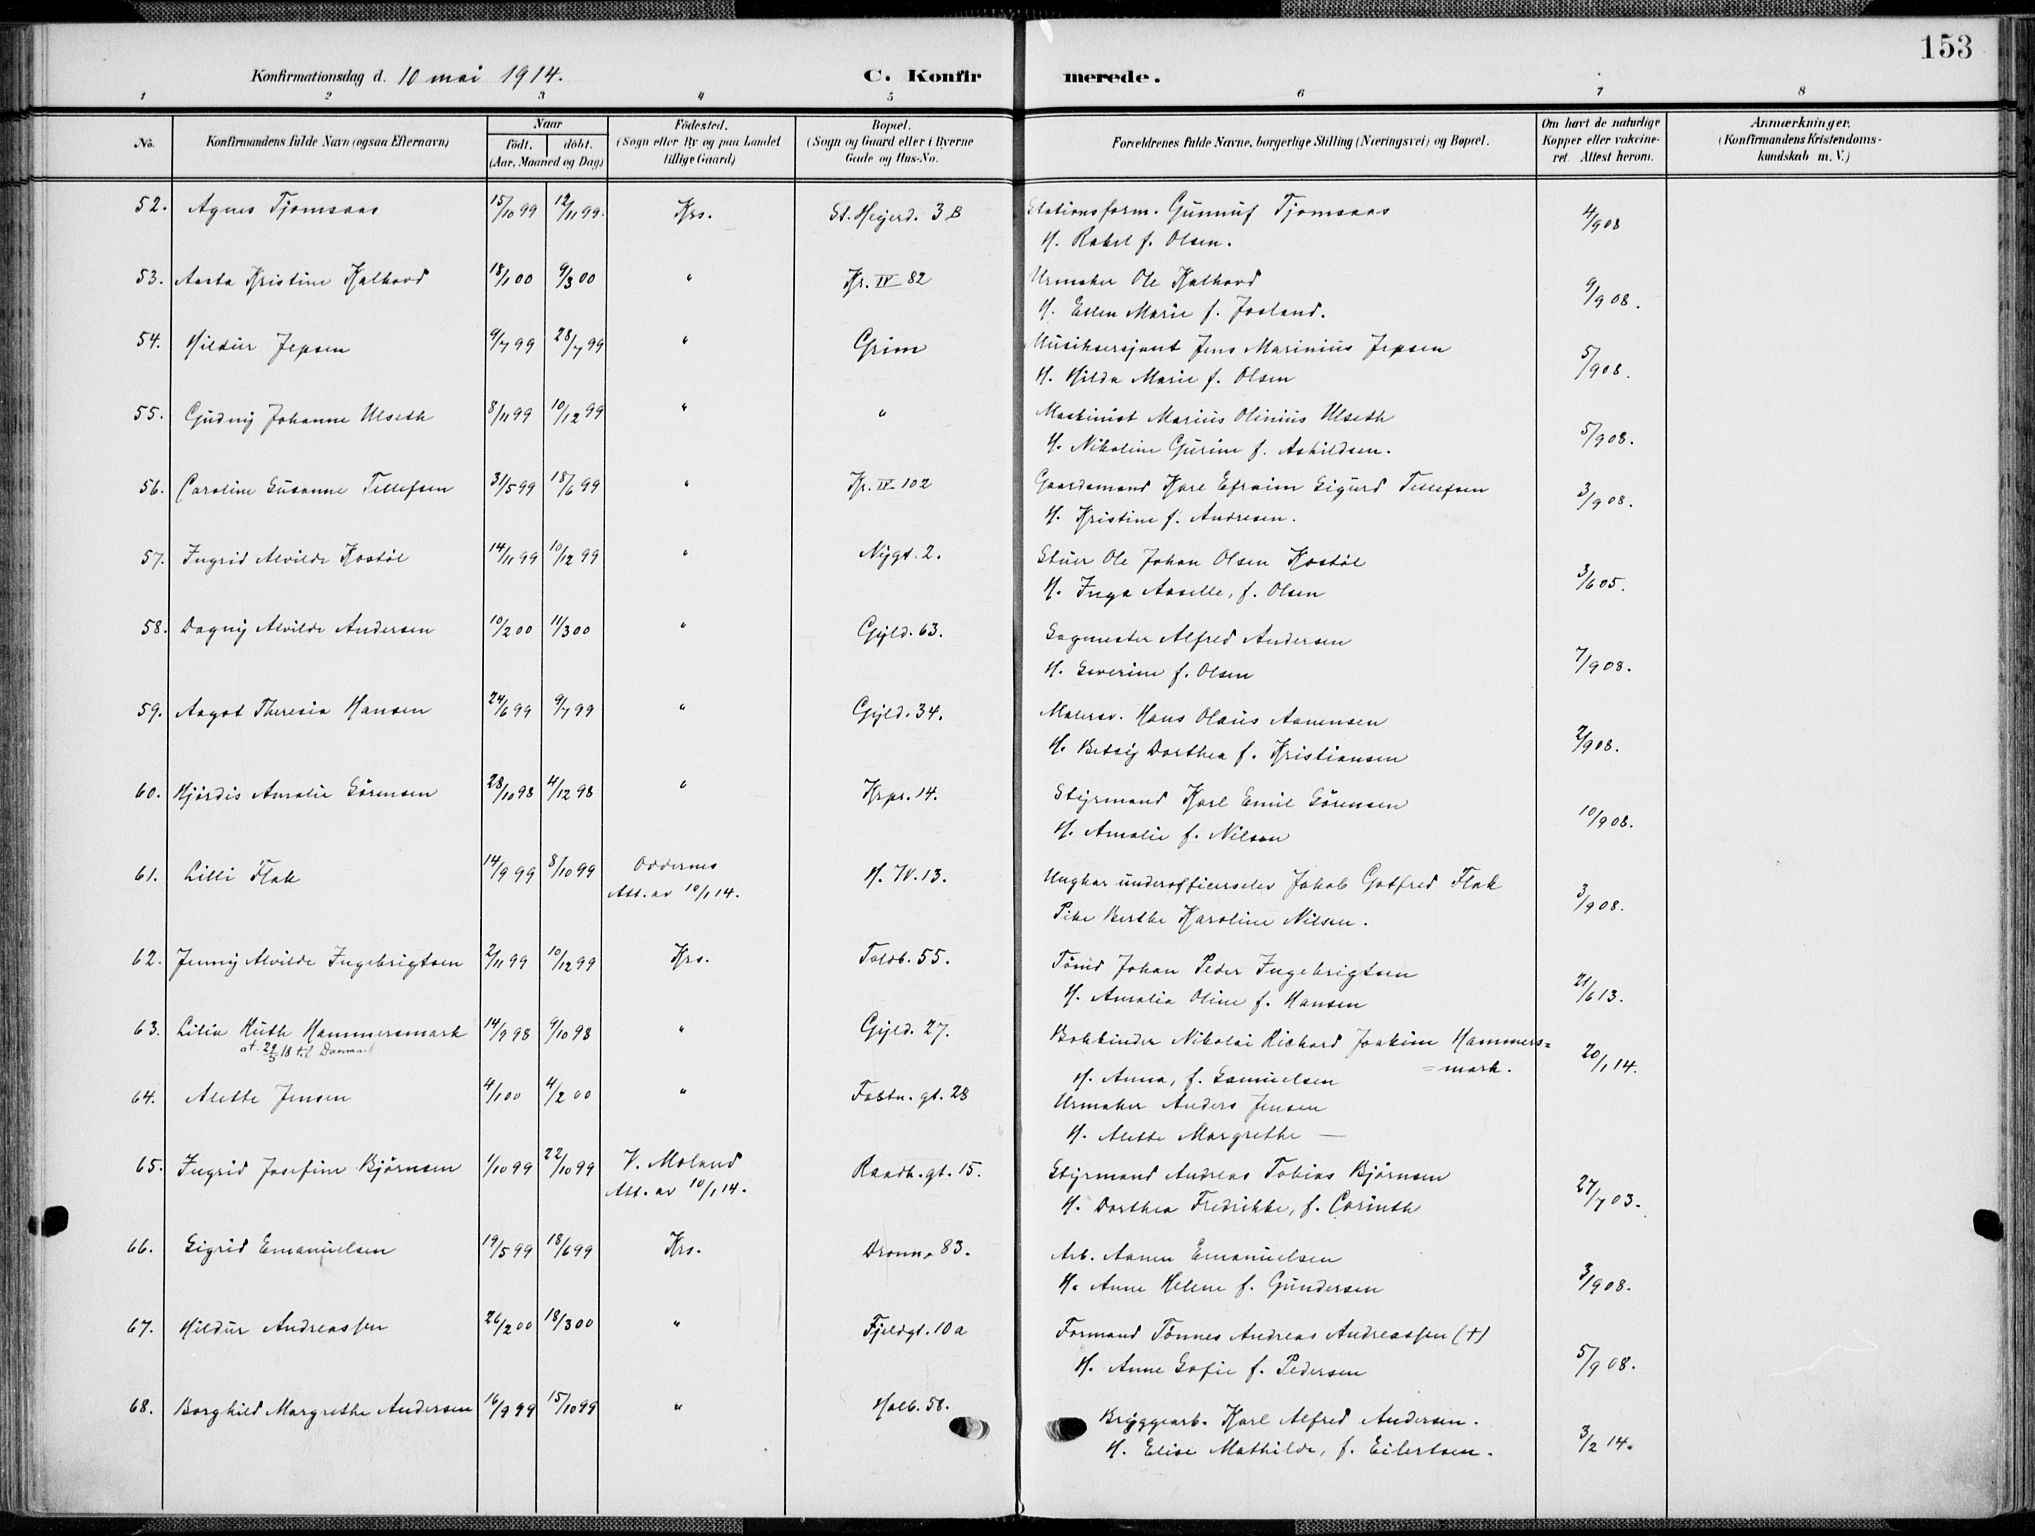 153
Konfirmationsdag d. 10 mai 1914. C. Konfirmerede.
1 2 3 4 5 6 7 8
No. Konfirmandens fulde Navn (ogsaa Efternavn) Naar født. døbt. (Aar, Maaned og Dag) Fødested. (Sogn eller By og paa Landet tillige Gaard) Bopæl. (Sogn og Gaard eller i Byerne Gade og Hus-No. Forældrenes fulde Navne, borgerlige Stilling (Næringsvei) og Bopæl. Om havt de naturlige Kopper eller vakcineret. Attest herom. Anmærkninger. (Konfirmandens Kristendomskundskab m. V.)
52. Agnes Tjomsaas 15/10 99 12/11 99. Krs. St. Hejerd. 3 B Stationsform. Gunnuf Tjomsaas 4/9 08
H. Rakel f. Olsen.
53. Aasta Kristine Kalhovd 18/1 00 9/3 00 " Kr. IV 82 Urmaker Ole Kalhovd 9/9 08.
H. Ellen Marie f. Jortand.
54. Hildur Jepsen 9/7 99 28/7 99 " Grim Musiksersjant Jens Marinius Jepsen 5/9 08.
H. Hilda Marie f. Olsen
55. Gudny Johanne Ulseth 8/11 99 10/12 99 " " Maskinist Marius Olinius Ulseth 5/9 08.
H. Nikoline Gurine f. Askildsen.
56. Caroline Susanne Tellefsen 31/5 99 18/6 99 " Kr. IV 102 Gaardsmand Karl Efraim Sigurd Tellefsen 3/9 08.
H. Kristine f. Andresen.
57. Ingrid Alvilde Kostøl 14/11 99 10/12 99 " Nygt. 2. Stuer Ole Johan Olsen Kostøl 3/6 05.
H. Inga Aaselle, f. Olsen
58. Dagny Alvilde Andersen 10/2 00 11/3 00 " Gyld. 63. Sagmester Alfred Andersen 7/9 08.
H. Severine f. Olsen
59. Aagot Theresia Hansen 24/6 99 9/7 99 " Gyld. 34. Malersv. Hans Olaus Aanensen 2/9 08.
H. Betsy Dorthea f. Kristiansen
60. Hjördis Amalie Sörensen 28/10 98 4/12 98 " Krpr. 14. Styrmand Karl Emil Sörensen 10/9 08.
H. Amalie f. Nilsen
61. Lilli Flak 14/9 99 8/10 99 Oddernes H. IV. 13. Ungkar underofficerselev Jakob Gotfred Flak 3/9 08.
Att. av 10/1 14. Pike Berthe Karoline Nilsen.
62. Jenny Alvilde Ingebrigtsen 2/11 99 10/12 99 Krs. Toldb. 55. Tömd Johan Peder Ingebrigtsen 21/6 13.
H. Amalia Oline f. Hansen
63. Lilia Ruth Hammersmark 14/9 98 9/10 98 " Gyld. 27. Bokbinder Nikolai Richard Joakim Hammers=
at. 29/5 18 til Danmark =mark. 20/1 14.
H. Anna, f. Samuelsen
64. Alette Jensen 4/1 00 4/2 00 " Festn. gt. 28 Urmaker Anders Jensen
H. Alette Margrethe —
65. Ingrid Josefine Björnsen 1/10 99 22/10 99 V. Moland Raadh. gt. 15. Styrmand Andreas Tobias Björnsen 27/7 03.
Att. av 10/1 14. H. Dorthea Fredrikke, f. Corinth
66. Sigrid Emanuelsen 19/5 99 18/6 99 Krs. Dronn. 83. Arb. Aanen Emanuelsen 3/9 08.
H. Anne Helene f. Gundersen
67. Hildur Andreassen 26/2 00 18/3 00 " Fjeldgt. 10a Formand Tönnes Andreas Andreassen (+) 5/9 08.
H. Anne Sofie f. Pedersen
68. Borghild Margrethe Andersen 16/9 99 15/10 99 " Holb. 58. Bryggearb. Karl Alfred Andersen. 3/2 14.
H. Elise Mathilde, f. Eilertsen.